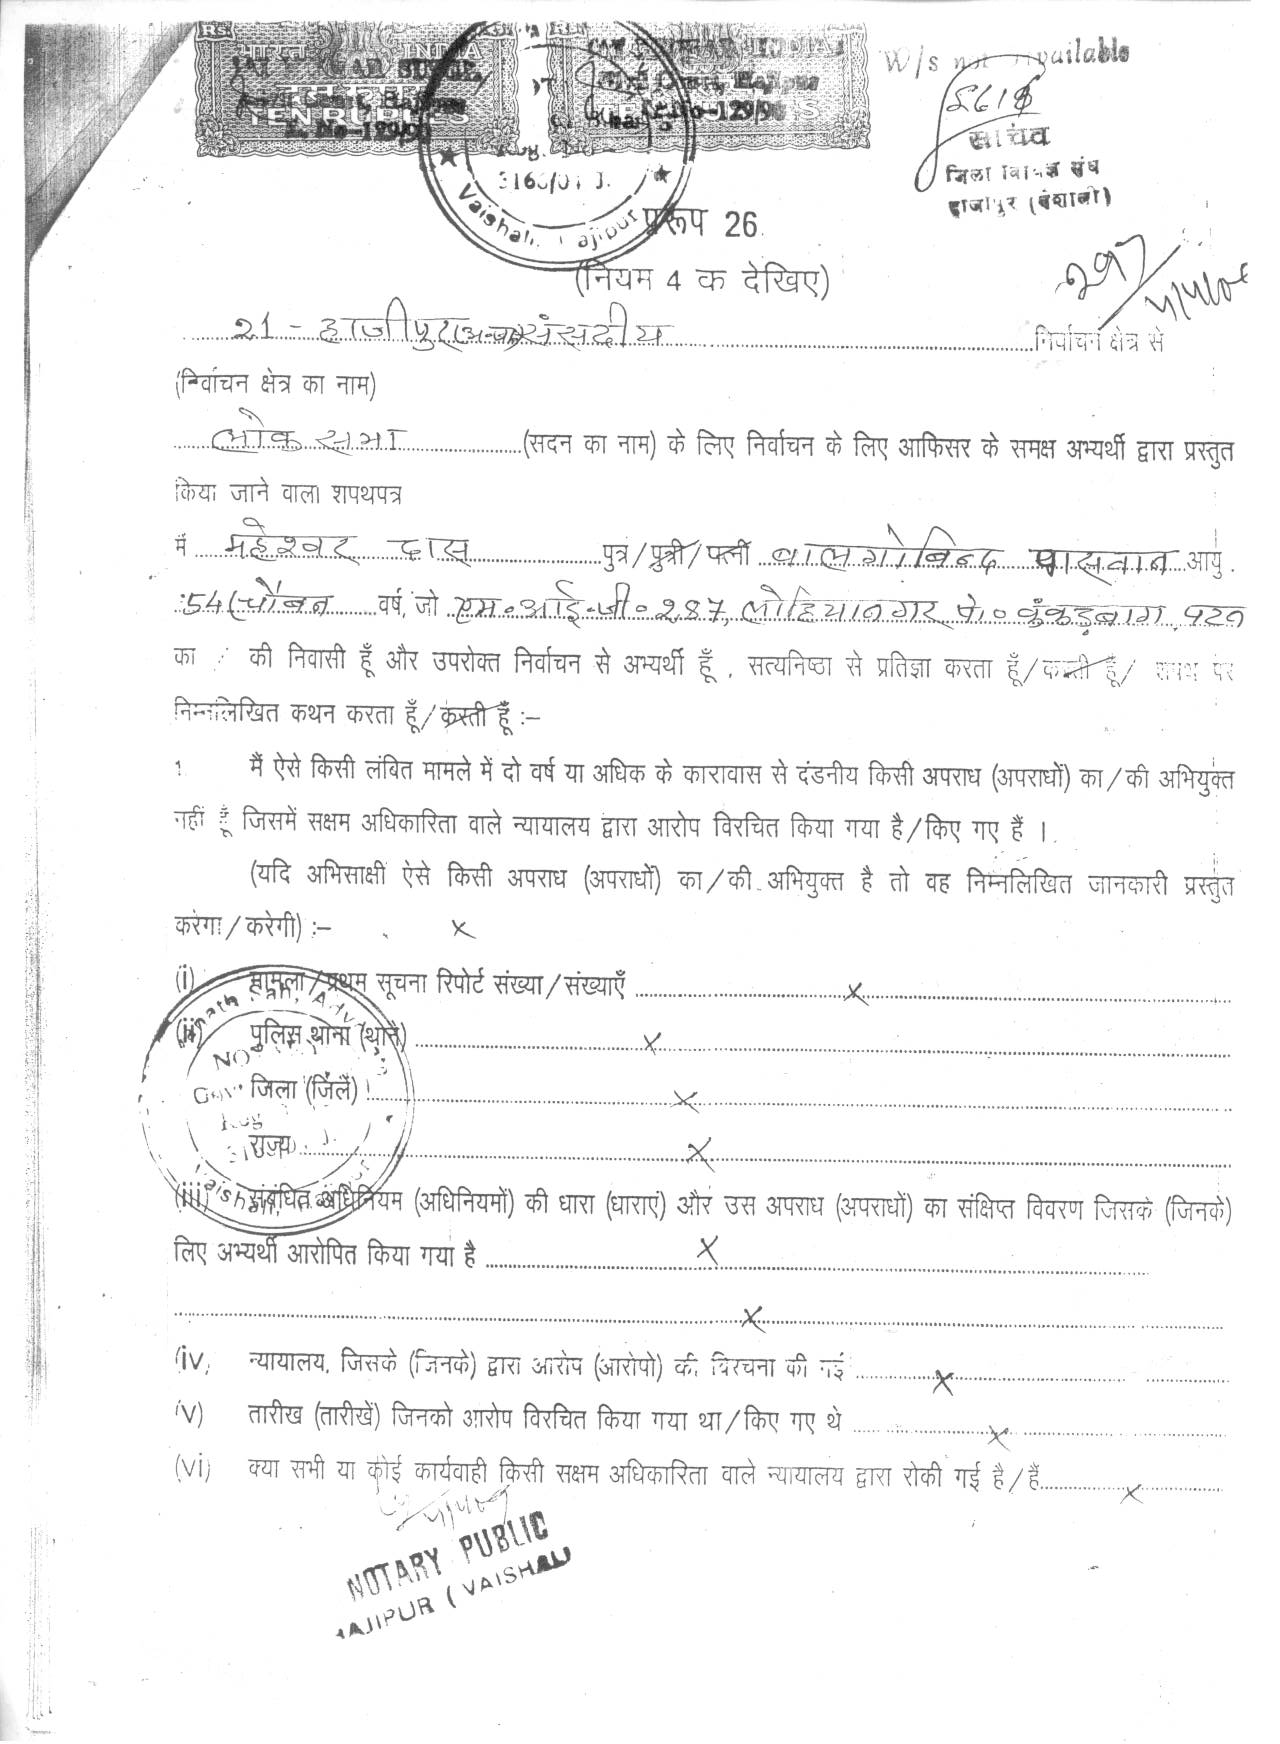 Rs.
भारत INDIA
TEN RUPEES
Civil Court, Hajipur
W/s not available
सचिव
जिला विधिज्ञ संघ
हाजीपुर (वैशाली)
Vaishali, Hajipur
प्ररूप 26
(नियम 4 क देखिए)
297
21 - हाजीपुर (अ०जा०) संसदीय निर्वाचन क्षेत्र से
(निर्वाचन क्षेत्र का नाम)
लोक सभा (सदन का नाम) के लिए निर्वाचन के लिए आफिसर के समक्ष अभ्यर्थी द्वारा प्रस्तुत
किया जाने वाला शपथपत्र
मैं महेश्वर दास पुत्र/पुत्री/पत्नी बालगोबिन्द पासवान आयु
54 (चौवन वर्ष, जो एम॰आई॰जी॰ 287, लोहियानगर पो॰ कुंकड़बाग, पटना
का / की निवासी हूँ और उपरोक्त निर्वाचन से अभ्यर्थी हूँ, सत्यनिष्ठा से प्रतिज्ञा करता हूँ/करती हूँ/ शपथ पर
निम्नलिखित कथन करता हूँ/करती हूँ :–
1. मैं ऐसे किसी लंबित मामले में दो वर्ष या अधिक के कारावास से दंडनीय किसी अपराध (अपराधों) का/की अभियुक्त
नहीं हूँ जिसमें सक्षम अधिकारिता वाले न्यायालय द्वारा आरोप विरचित किया गया है/किए गए हैं ।
(यदि अभिसाक्षी ऐसे किसी अपराध (अपराधों) का/की अभियुक्त है तो वह निम्नलिखित जानकारी प्रस्तुत
करेगा/करेगी) :– x
(i) मामला/प्रथम सूचना रिपोर्ट संख्या/संख्याएँ x
(ii) पुलिस थाना (थाने) x
जिला (जिलें) x
राज्य x
(iii) संबंधित अधिनियम (अधिनियमों) की धारा (धाराएं) और उस अपराध (अपराधों) का संक्षिप्त विवरण जिसके (जिनके)
लिए अभ्यर्थी आरोपित किया गया है x
x
(iv) न्यायालय, जिसके (जिनके) द्वारा आरोप (आरोपो) की विरचना की गई x
(v) तारीख (तारीखें) जिनको आरोप विरचित किया गया था/किए गए थे x
(vi) क्या सभी या कोई कार्यवाही किसी सक्षम अधिकारिता वाले न्यायालय द्वारा रोकी गई है/हैं x
NOTARY PUBLIC
HAJIPUR (VAISHALI